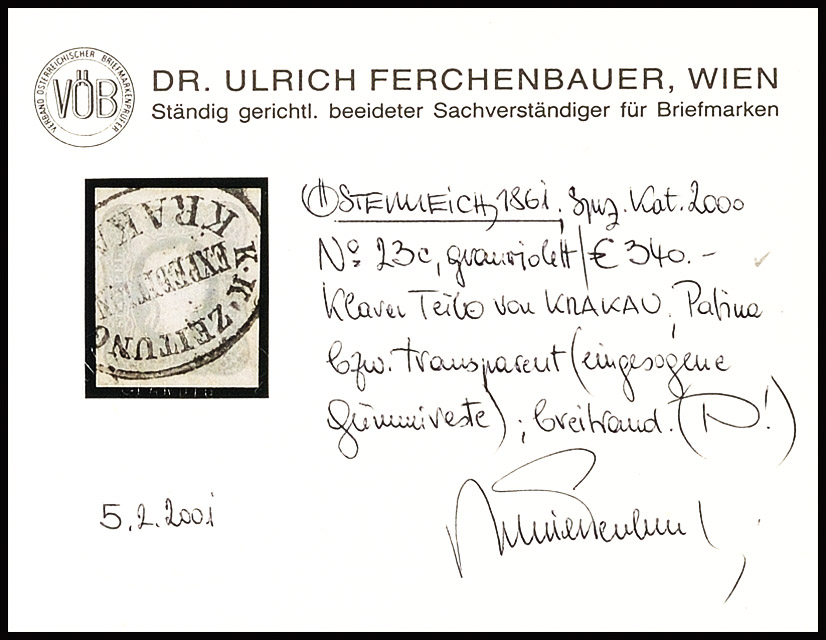 VERBAND ÖSTERREICHISCHER BRIEFMARKENPRÜFER
VÖB
DR. ULRICH FERCHENBAUER, WIEN
Ständig gerichtl. beeideter Sachverständiger für Briefmarken
K.K. ZEITUNGS
EXPEDITION
KRAKAU
ÖSTERREICH, 1861, Spez. Kat. 2000
No 23c, grauviolett / € 340.-
Klarer Teilo von KRAKAU, Patina
bzw. transparent (eingesogene
Gummireste); breitrand. (N!)
5.2.2001